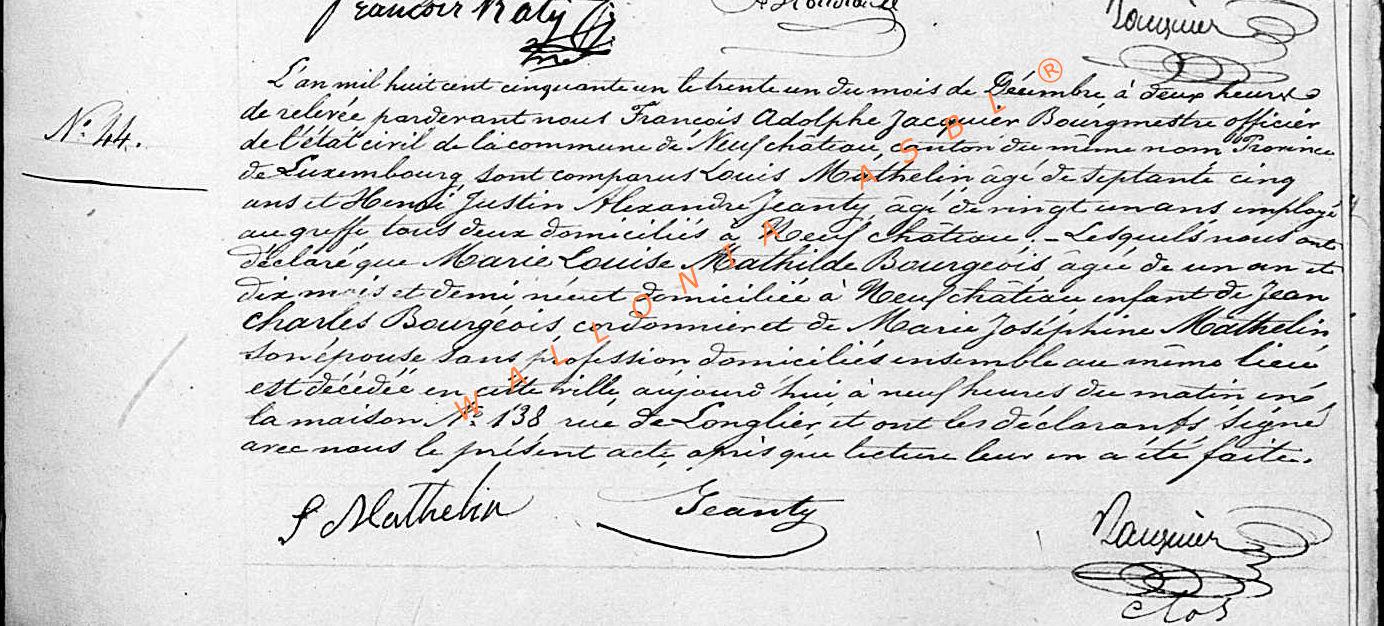 François Raty
N.° 44.
L'an mil huit cent cinquante un le trente un du mois de Décembre à deux heures
de relevée pardevant nous François Adolphe Jacquier Bourgmestre officier
de l'état civil de la commune de Neufchâteau, canton du même nom Province
de Luxembourg sont comparus Louis Mathelin âgé de septante cinq
ans et Henri Justin Alexandre Jeanty âgé de vingt un ans employé
au greffe tous deux domiciliés à Neufchâteau. - Lesquels nous ont
déclaré que Marie Louise Mathilde Bourgeois âgée de un an et
dix mois et demi née et domiciliée à Neufchâteau enfant de Jean
Charles Bourgeois cordonnier et de Marie Joséphine Mathelin
son épouse sans profession domiciliés ensemble au même lieu
est décédée en cette ville aujourd'hui à neuf heures du matin en
la maison N.° 138 rue de Longlier, et ont les déclarants signé
avec nous le présent acte, après que lecture leur en a été faite.
L Mathelin Jeanty Jacquier
clos
WALLONIA ASBL ®